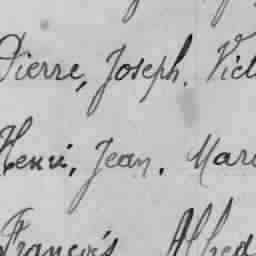 Pierre, Joseph. Vict
Henri, Jean. Mar
François Alfred